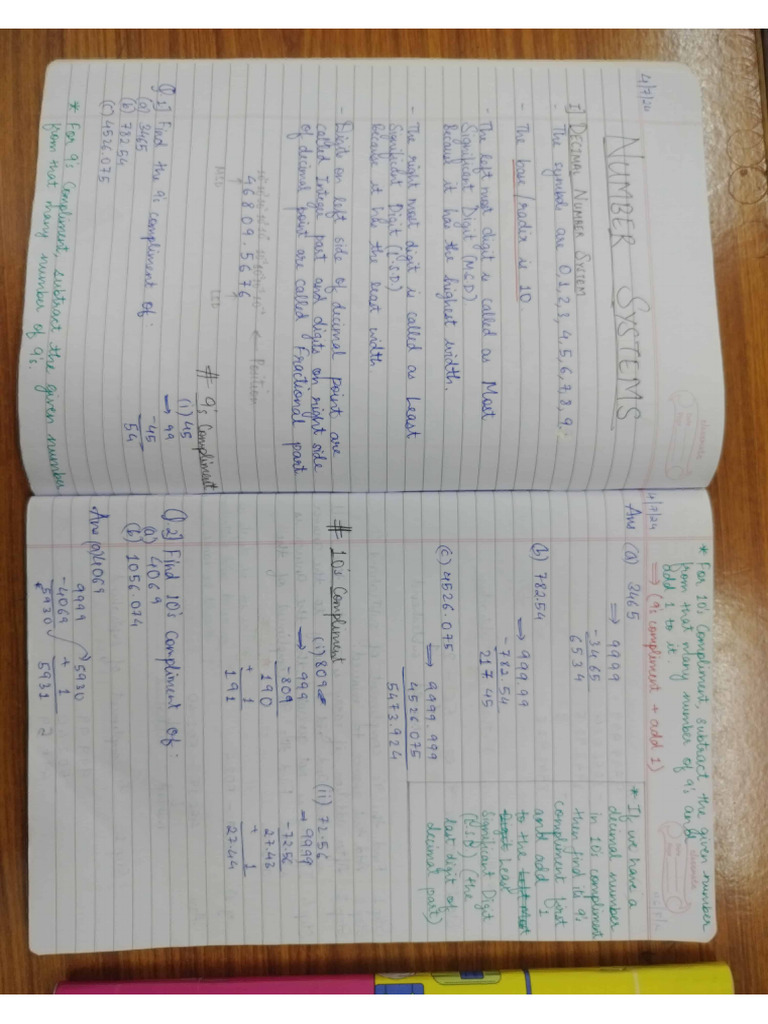 4/7/24
NUMBER SYSTEMS
I] DECIMAL NUMBER SYSTEM
- The symbols are 0,1,2,3,4,5,6,7,8,9.
- The base/radix is 10
- The left most digit is called as Most
Significant Digit (M.S.D.)
because it has the highest width.
- The right most digit is called as Least
Significant Digit (L.S.D.)
because it has the least width
- Digits on left side of decimal point are
called Integer part and digits on right side
of decimal point are called Fractional part
46809.5676
← Position
MSD
LSD
# 9's Compliment
(i) 45
→ 99
-45
54
Q 1] Find the 9's compliment of:
(a) 3465
(b) 782.54
(c) 4526.075
* For 9's Compliment, subtract the given number
from that many number of 9's.
* For 10's Compliment, subtract the given number
from that many number of 9's and
add 1 to it.
⇒ (9's compliment + add 1)
4/7/24
Ans (a) 3465
⇒ 9999
-3465
6534
(b) 782.54
→ 999.99
-782.54
217.45
(c) 4526.075
→ 9999.999
4526.075
5473.924
* If we have a
decimal number
in 10's compliment
then find its 9's
compliment first
and add 1
to the
Least
Significant Digit
(L.S.D) (the
last digit of
decimal part)
# 10's Compliment
(i) 809
→ 999
-809
190
+ 1
191
(ii) 72.56
→ 99.99
-72.56
27.43
+ 1
27.44
Q 2] Find 10's Compliment of:
(a) 4069
(b) 1056.074
Ans (a) 4069
9999
-4069
5930
5930
+ 1
5931